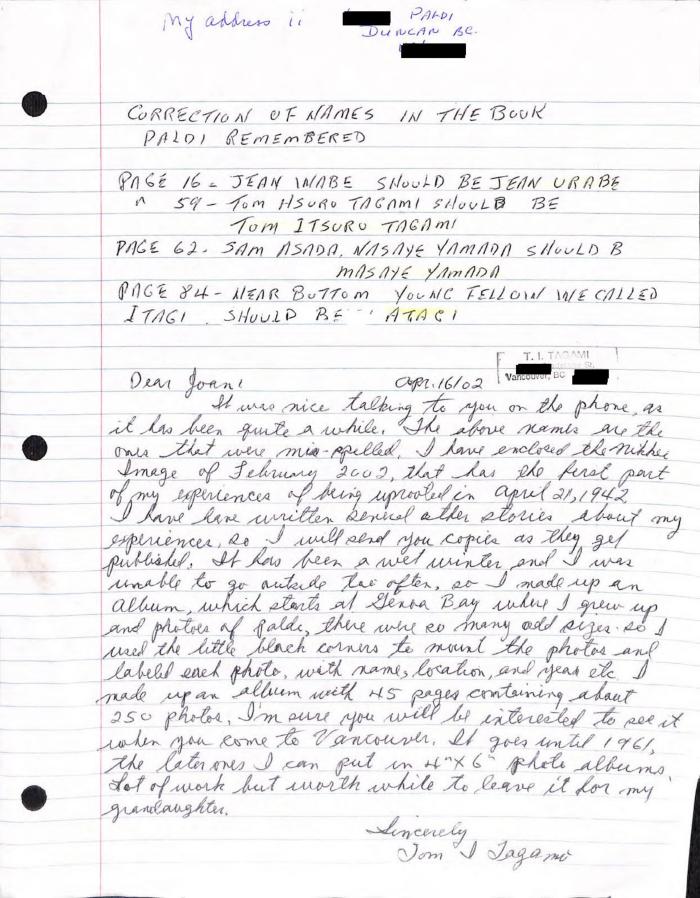 My address is PALDI
DUNCAN BC.
CORRECTION OF NAMES IN THE BOOK
PALDI REMEMBERED
PAGE 16 - JEAN WABE SHOULD BE JEAN URABE
" 59 - TOM HSURO TAGAMI SHOULD BE
TOM ITSURO TAGAMI
PAGE 62 - SAM ASADA, NASAYE YAMADA SHOULD B
MASAYE YAMADA
PAGE 84 - NEAR BOTTOM YOUNG FELLOW WE CALLED
ITAGI SHOULD BE ATAGI
T. I. TAGAMI
Vancouver, BC
Dear Joan: Apr. 16/02
It was nice talking to you on the phone, as
it has been quite a while. The above names are the
ones that were mis-spilled. I have enclosed the Nikkei
Image of February 2002, that has the first part
of my experiences of being uprooted in April 21, 1942
I have have written several other stories about my
experiences, so I will send you copies as they get
published. It has been a wet winter, and I was
unable to go outside too often, so I made up an
album, which starts at Genoa Bay where I grew up
and photos of Paldi, there were so many odd sizes so I
used the little black corners to mount the photos and
labeled each photo, with name, location, and year etc. I
made up an album with 45 pages containing about
250 photos. I'm sure you will be interested to see it
when you come to Vancouver. It goes until 1961,
the later ones I can put in 4"x6" photo albums.
Lot of work but worth while to leave it for my
grandaughter.
Sincerely
Tom I Tagami